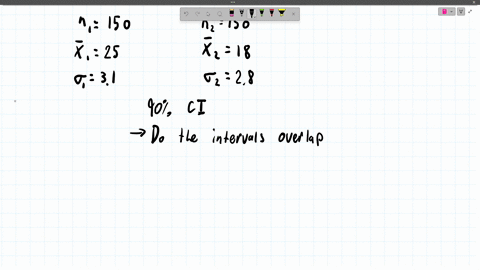 n₁ = 150 n₂ = 150
X̄₁ = 25 X̄₂ = 18
σ₁ = 3.1 σ₂ = 2.8
90% CI
→ Do the intervals overlap